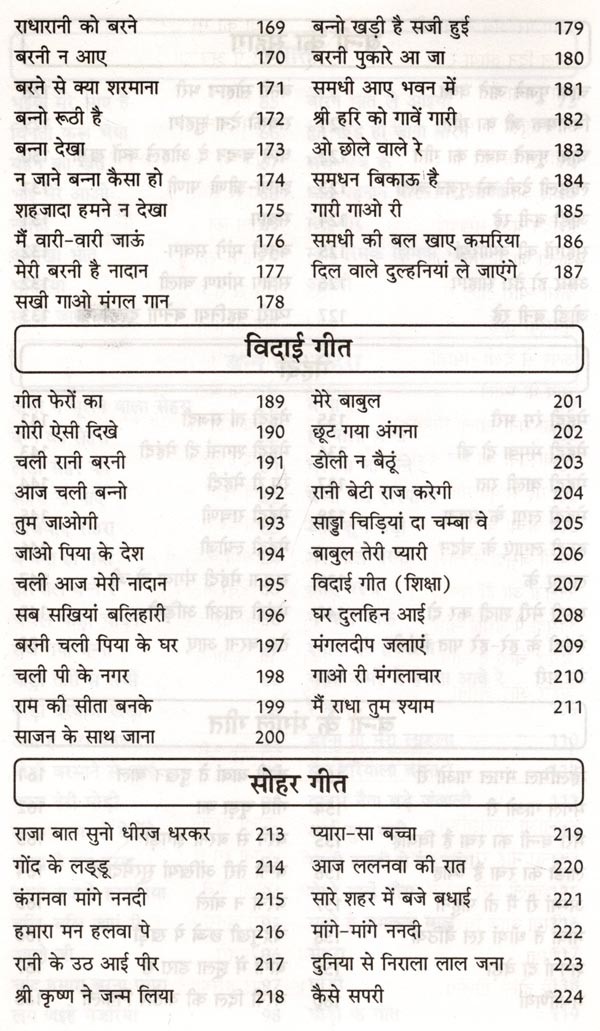 राधारानी को बरने 169
बरनी न आए 170
बरने से क्या शरमाना 171
बन्नो रूठी है 172
बन्ना देखा 173
न जाने बन्ना कैसा हो 174
शहजादा हमने न देखा 175
मैं वारी-वारी जाऊं 176
मेरी बरनी है नादान 177
सखी गाओ मंगल गान 178
बन्नो खड़ी है सजी हुई 179
बरनी पुकारे आ जा 180
समधी आए भवन में 181
श्री हरि को गावें गारी 182
ओ छोले वाले रे 183
समधन बिकाऊ है 184
गारी गाओ री 185
समधी की बल खाए कमरिया 186
दिल वाले दुल्हनियां ले जाएंगे 187
विदाई गीत
गीत फेरों का 189
गोरी ऐसी दिखे 190
चली रानी बरनी 191
आज चली बन्नो 192
तुम जाओगी 193
जाओ पिया के देश 194
चली आज मेरी नादान 195
सब सखियां बलिहारी 196
बरनी चली पिया के घर 197
चली पी के नगर 198
राम की सीता बनके 199
साजन के साथ जाना 200
मेरे बाबुल 201
छूट गया अंगना 202
डोली न बैठूं 203
रानी बेटी राज करेगी 204
साड्डा चिड़ियां दा चम्बा वे 205
बाबुल तेरी प्यारी 206
विदाई गीत (शिक्षा) 207
घर दुलहिन आई 208
मंगलदीप जलाएं 209
गाओ री मंगलाचार 210
मैं राधा तुम श्याम 211
सोहर गीत
राजा बात सुनो धीरज धरकर 213
गोंद के लड्डू 214
कंगनवा मांगे ननदी 215
हमारा मन हलवा पे 216
रानी के उठ आई पीर 217
श्री कृष्ण ने जन्म लिया 218
प्यारा-सा बच्चा 219
आज ललनवा की रात 220
सारे शहर में बजे बधाई 221
मांगे-मांगे ननदी 222
दुनिया से निराला लाल जना 223
कैसे सपरी 224